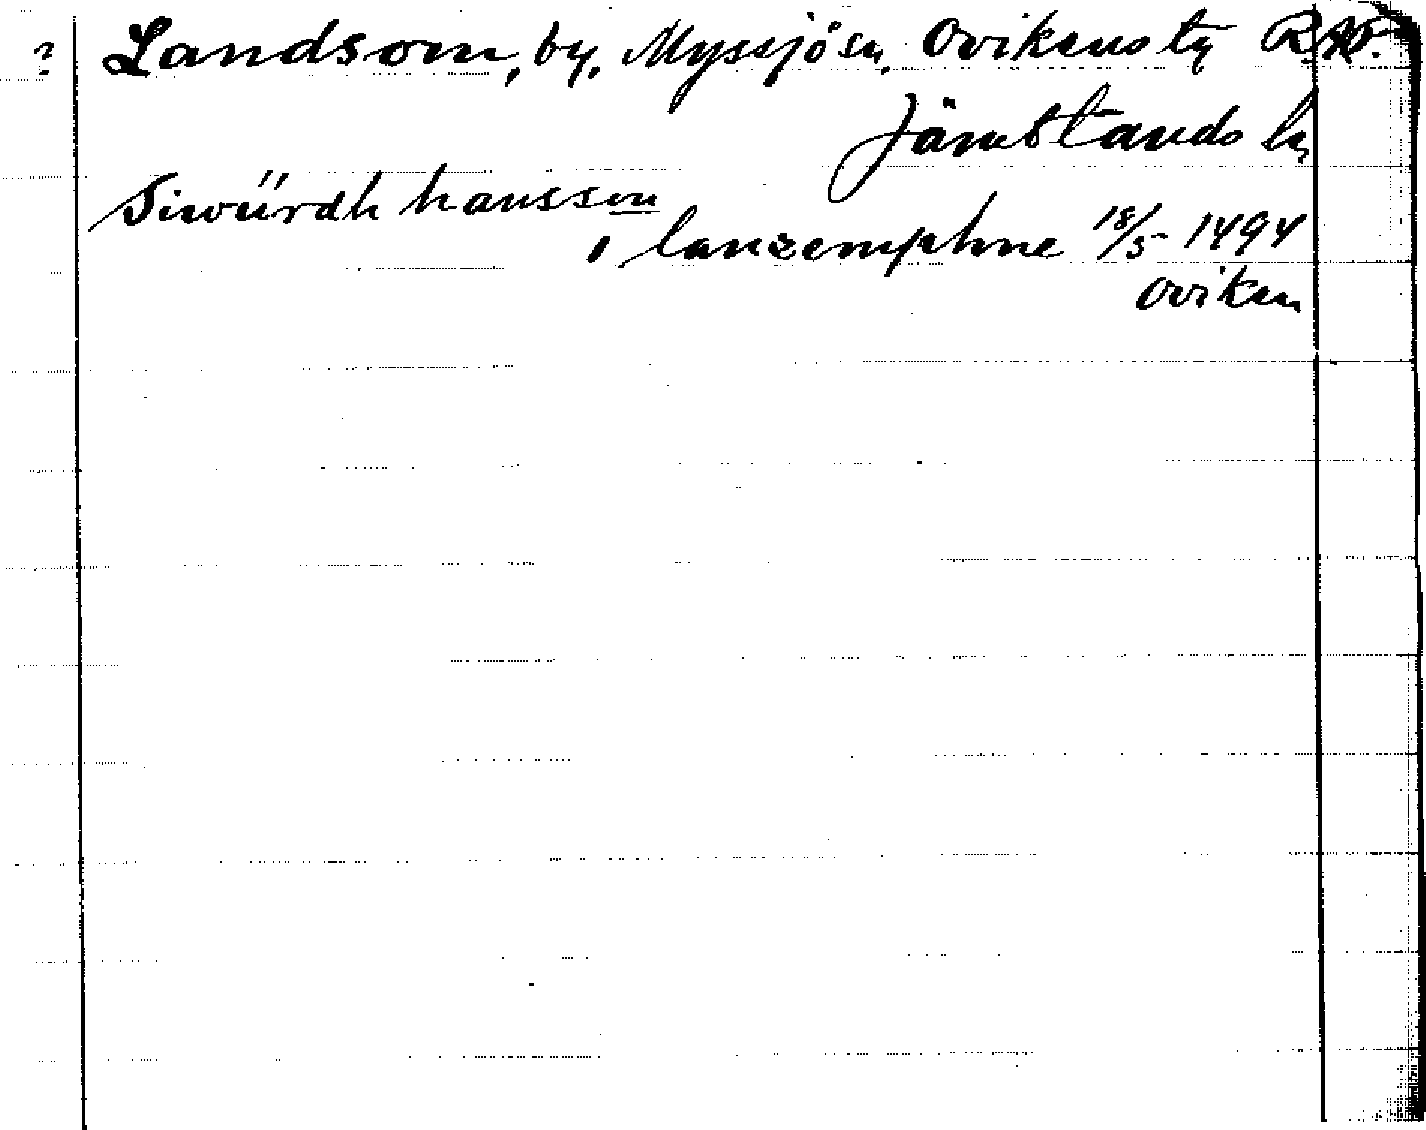 ? Landsom, by, Myssjö sn, Ovikens tg R.A.P.
Jämtlands ln
Siwürdh hansson
i lanzemphne 18/5 1494
Oviken